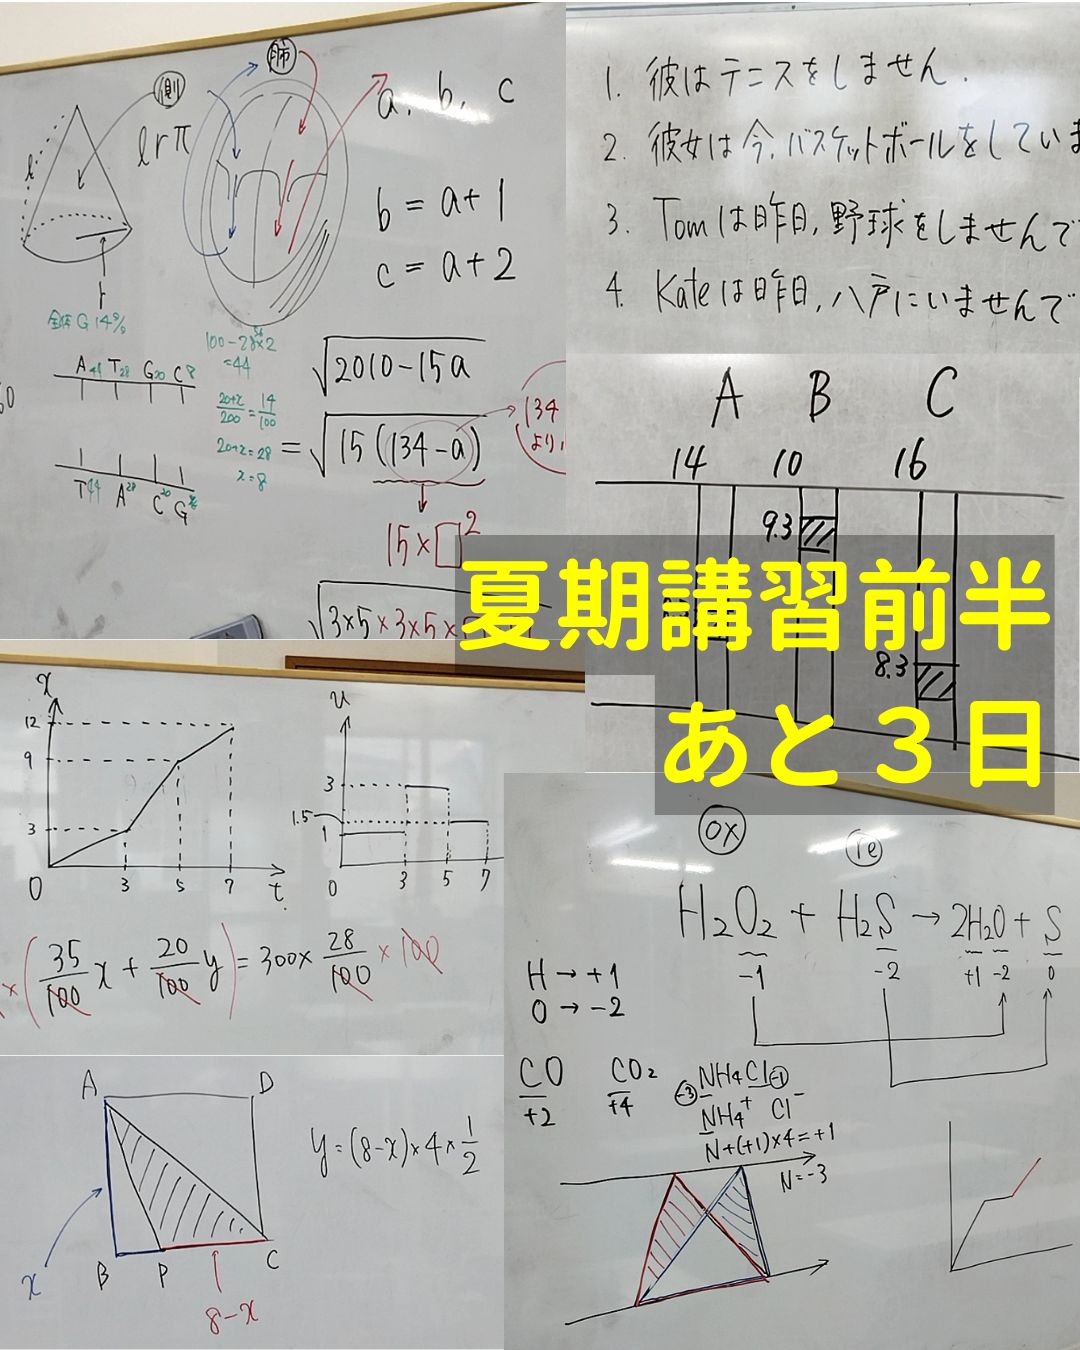 側
肺
lrπ
l
r
a, b, c
b = a+1
c = a+2
全体G 14%
A44 T28 G20 C8
T44 A28 C20 G
100-28×2
=44
20+x/200=14/100
20+x=28
x=8
√2010-15a
=√15(134-a)
134
より
15×□²
√3×5×3×5×
1. 彼はテニスをしません.
2. 彼女は今,バスケットボールをしていま
3. Tomは昨日,野球をしませんで
4. Kateは昨日,八戸にいませんで
A B C
14 10 16
9.3
8.3
夏期講習前半
あと3日
x
12
9
3
0 3 5 7 t
u
3
1.5
1
0 3 5 7
×(35/100 x + 20/100 y) = 300×28/100 ×100
A D
B P C
x
8-x
y=(8-x)×4×1/2
ox re
H₂O₂ + H₂S → 2H₂O + S
-1 -2 +1 -2 0
H → +1
O → -2
CO CO₂
+2 +4
-3 NH4Cl -1
NH4⁺ Cl⁻
N+(+1)×4=+1
N=-3